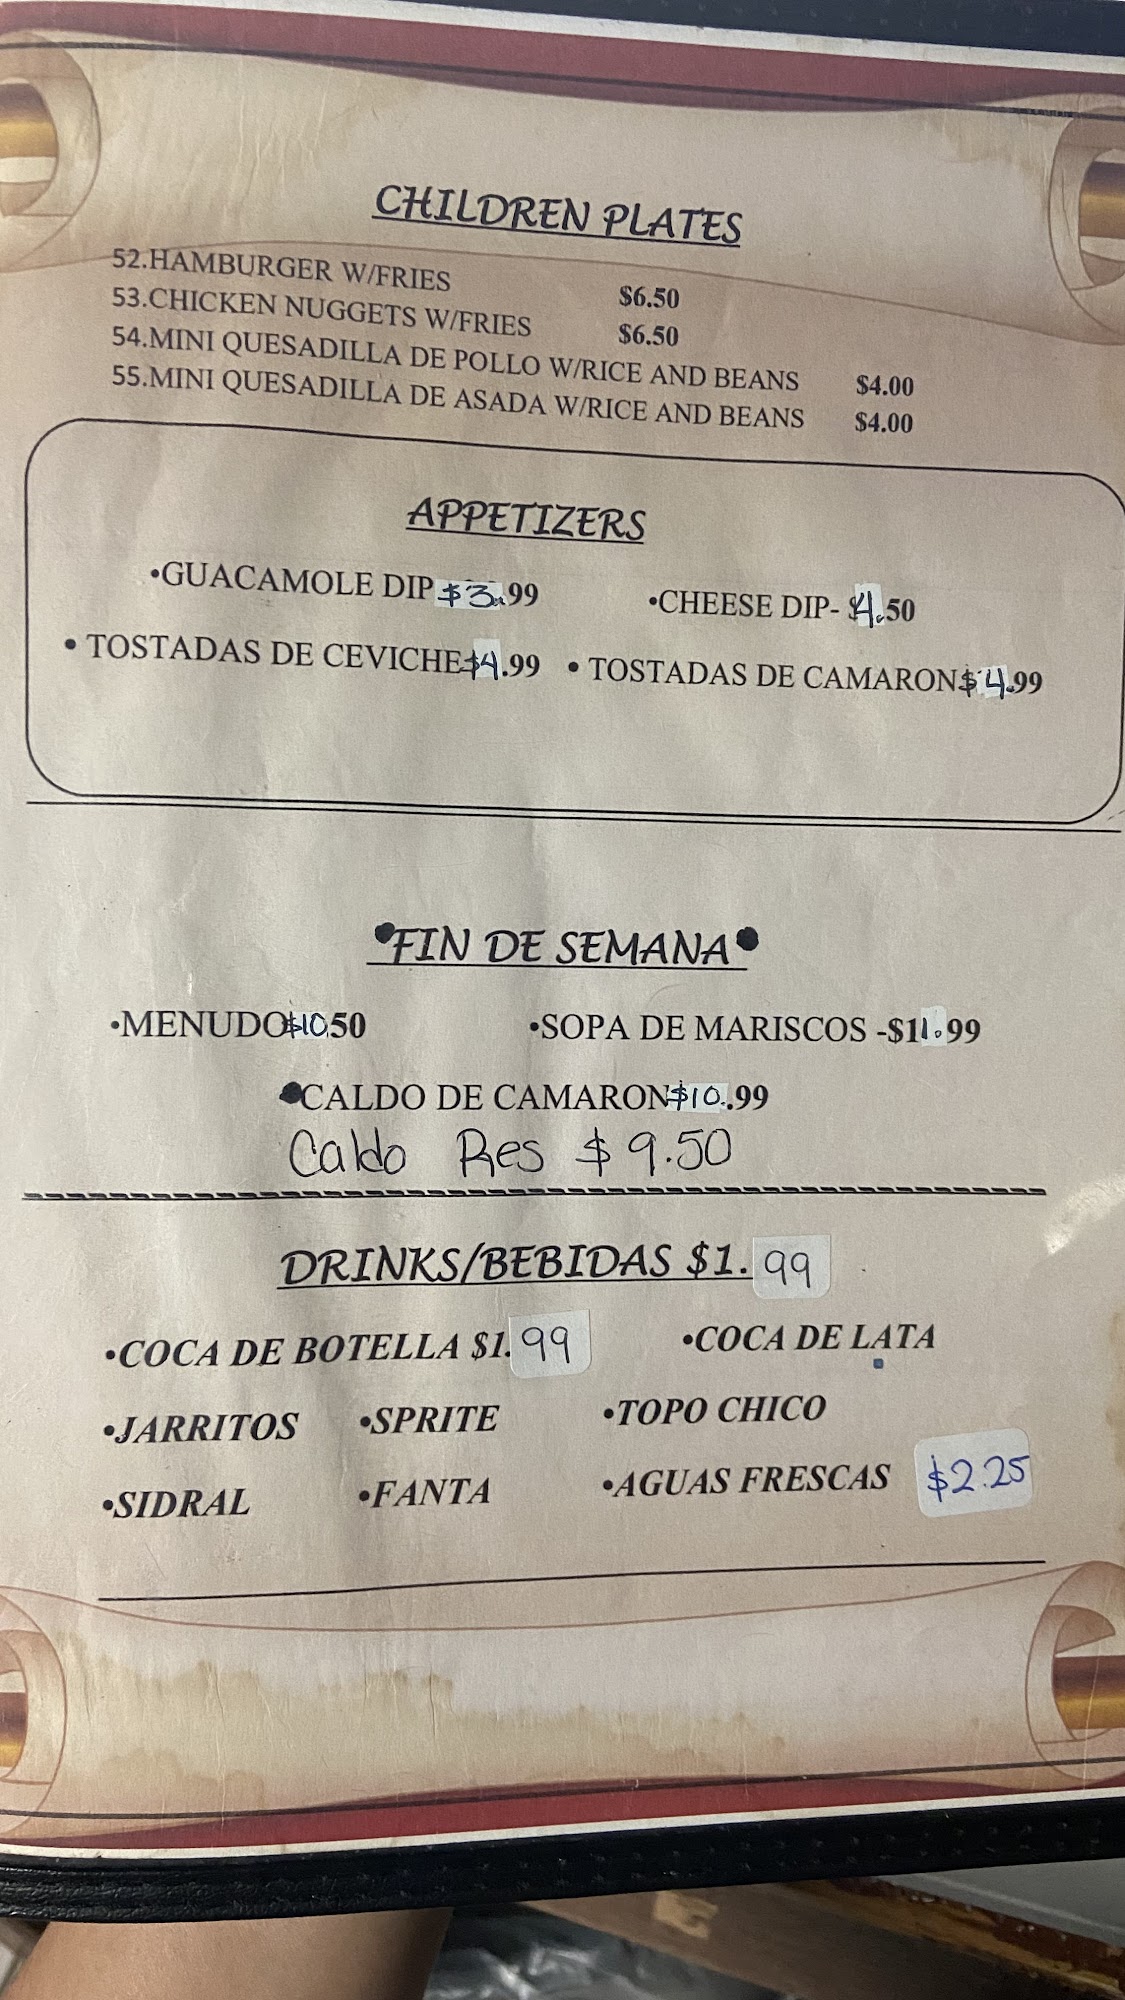 CHILDREN PLATES
52.HAMBURGER W/FRIES $6.50
53.CHICKEN NUGGETS W/FRIES $6.50
54.MINI QUESADILLA DE POLLO W/RICE AND BEANS $4.00
55.MINI QUESADILLA DE ASADA W/RICE AND BEANS $4.00
APPETIZERS
•GUACAMOLE DIP $3.99 •CHEESE DIP- $4.50
• TOSTADAS DE CEVICHE $4.99 • TOSTADAS DE CAMARON $4.99
•FIN DE SEMANA•
•MENUDO $10.50 •SOPA DE MARISCOS -$11.99
•CALDO DE CAMARON $10.99
Caldo Res $9.50
DRINKS/BEBIDAS $1.99
•COCA DE BOTELLA $1.99 •COCA DE LATA
•JARRITOS •SPRITE •TOPO CHICO
•SIDRAL •FANTA •AGUAS FRESCAS $2.25